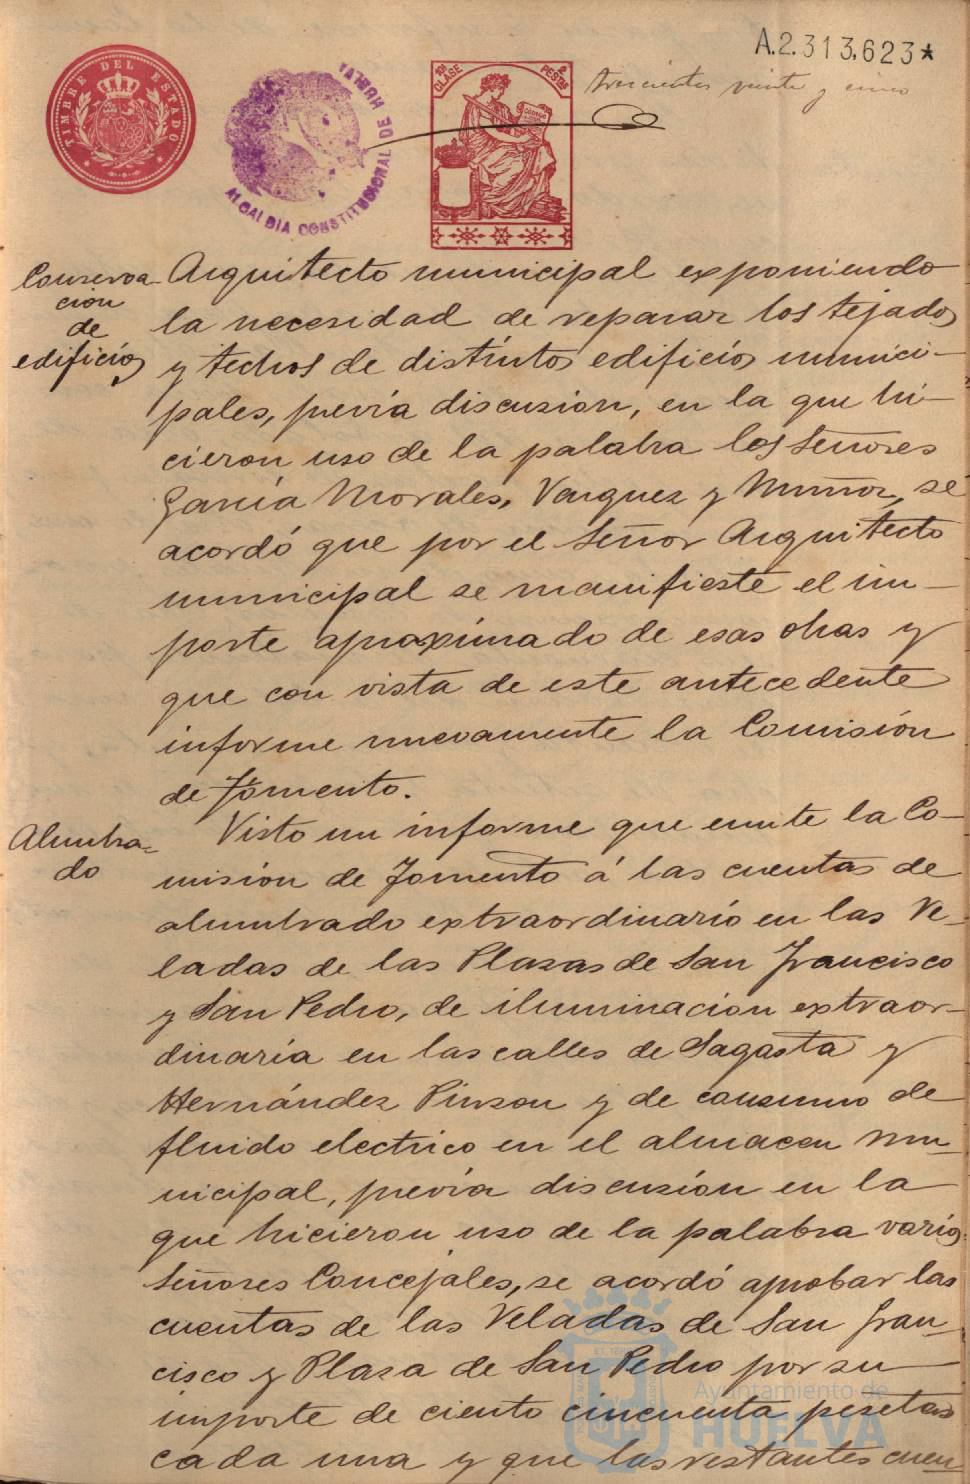 A.2.313,623*
trescientos veinte y cinco
TIMBRE DEL ESTADO
ALCALDIA CONSTITUCIONAL DE HUELVA
10ª CLASE
2 PESETAS
Conserva-
cion
de
edificios
Arquitecto municipal exponiendo
la necesidad de reparar los tejados
y techos de distintos edificios munici-
pales, previa discusion, en la que hi-
cieron uso de la palabra los Señores
Garcia Morales, Vazquez y Muñoz, se
acordó que por el Señor Arquitecto
municipal se manifieste el im-
porte aproximado de esas obras y
que con vista de este antecedente
informe nuevamente la Comisión
de Fomento.
Alumbra-
do
Visto un informe que emite la Co-
misión de Fomento á las cuentas de
alumbrado extraordinario en las Ve-
ladas de las Plazas de San Francisco
y San Pedro, de iluminacion extraor-
dinaria en las calles de Sagasta y
Hernández Pinzon y de consumo de
fluido electrico en el almacen mu-
nicipal, previa discusión en la
que hicieron uso de la palabra varios
Señores Concejales, se acordó aprobar las
cuentas de las Veladas de San Fran-
cisco y Plaza de San Pedro por su
importe de ciento cincuenta pesetas
cada una y que las restantes cuen
Ayuntamiento de
HUELVA